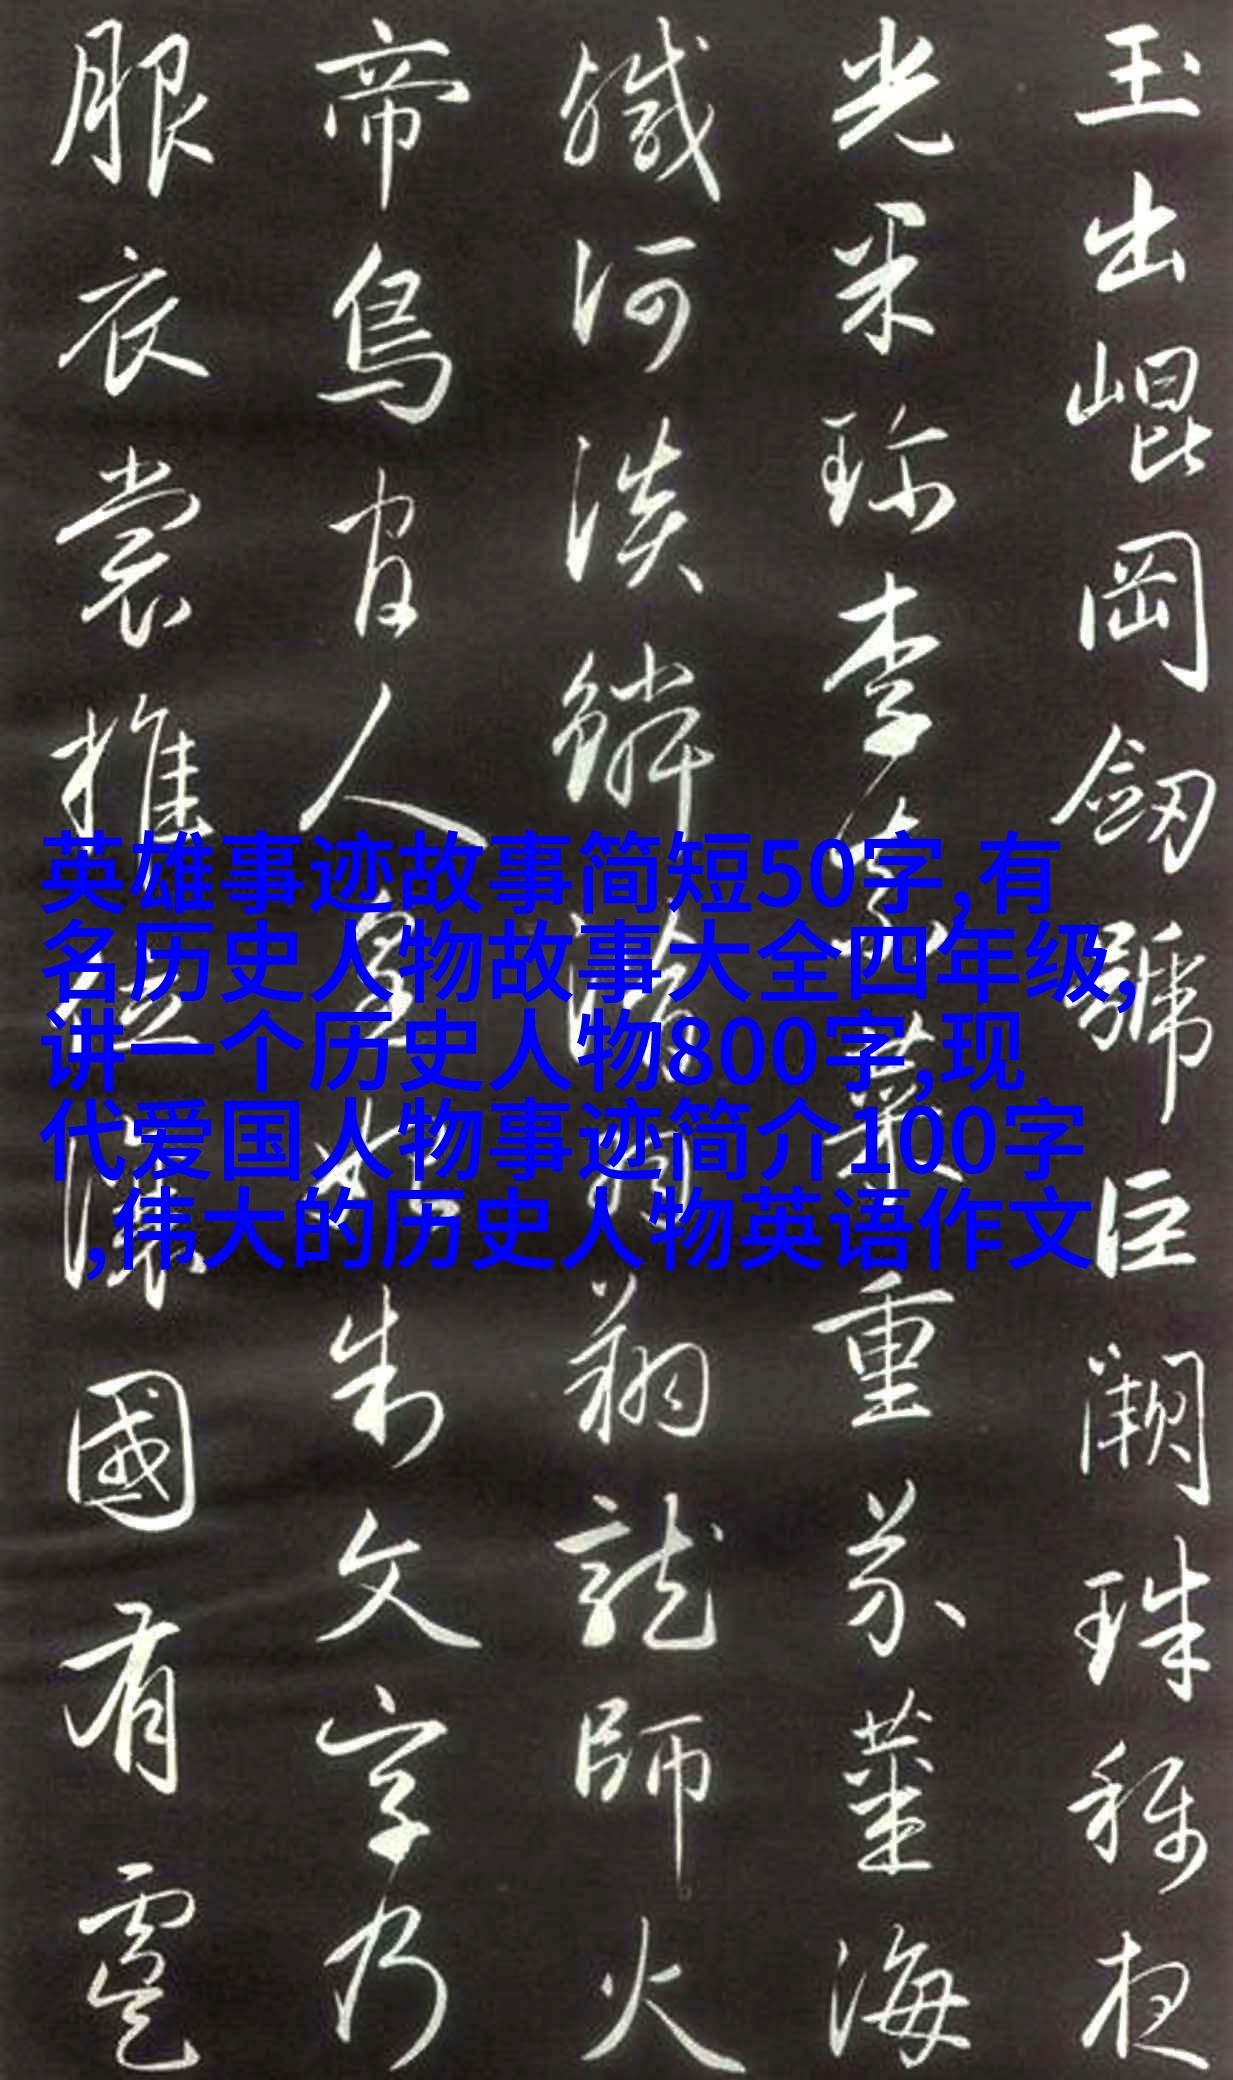 玉出崐岡劒號巨闕珠稱夜
光果珍李柰菜重芥薑海
鹹河淡鱗潛羽翔龍師火
帝鳥官人皇始制文字乃
服衣裳推位讓國有虞
英雄事迹故事简短50字,有
名历史人物故事大全四年级,
讲一个历史人物800字,现
代爱国人物事迹简介100字
,伟大的历史人物英语作文